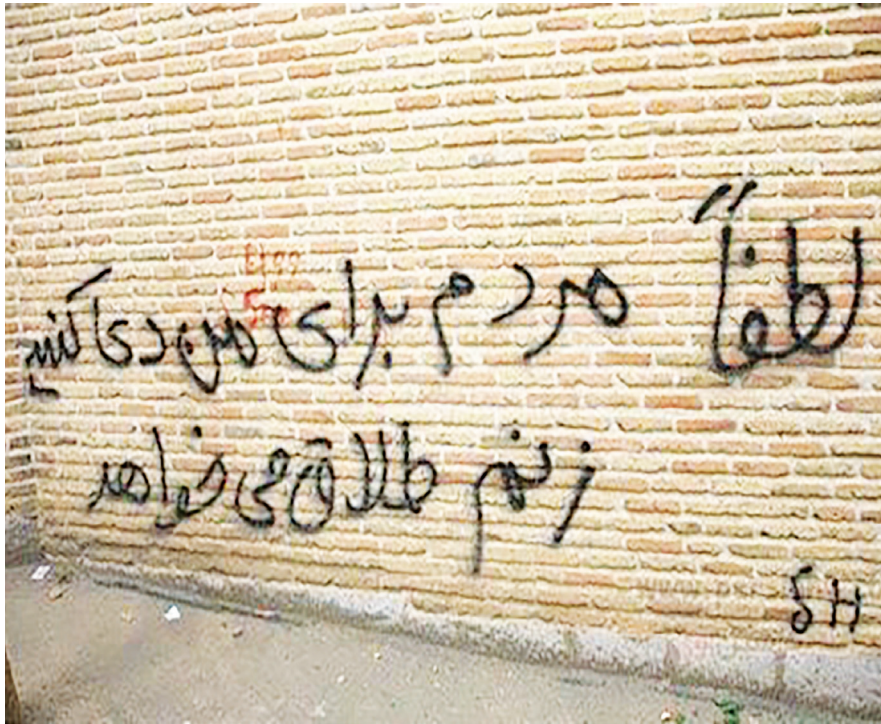 لطفاً مردم برای من دعا کنید
زنم طلاق می خواهد
SH